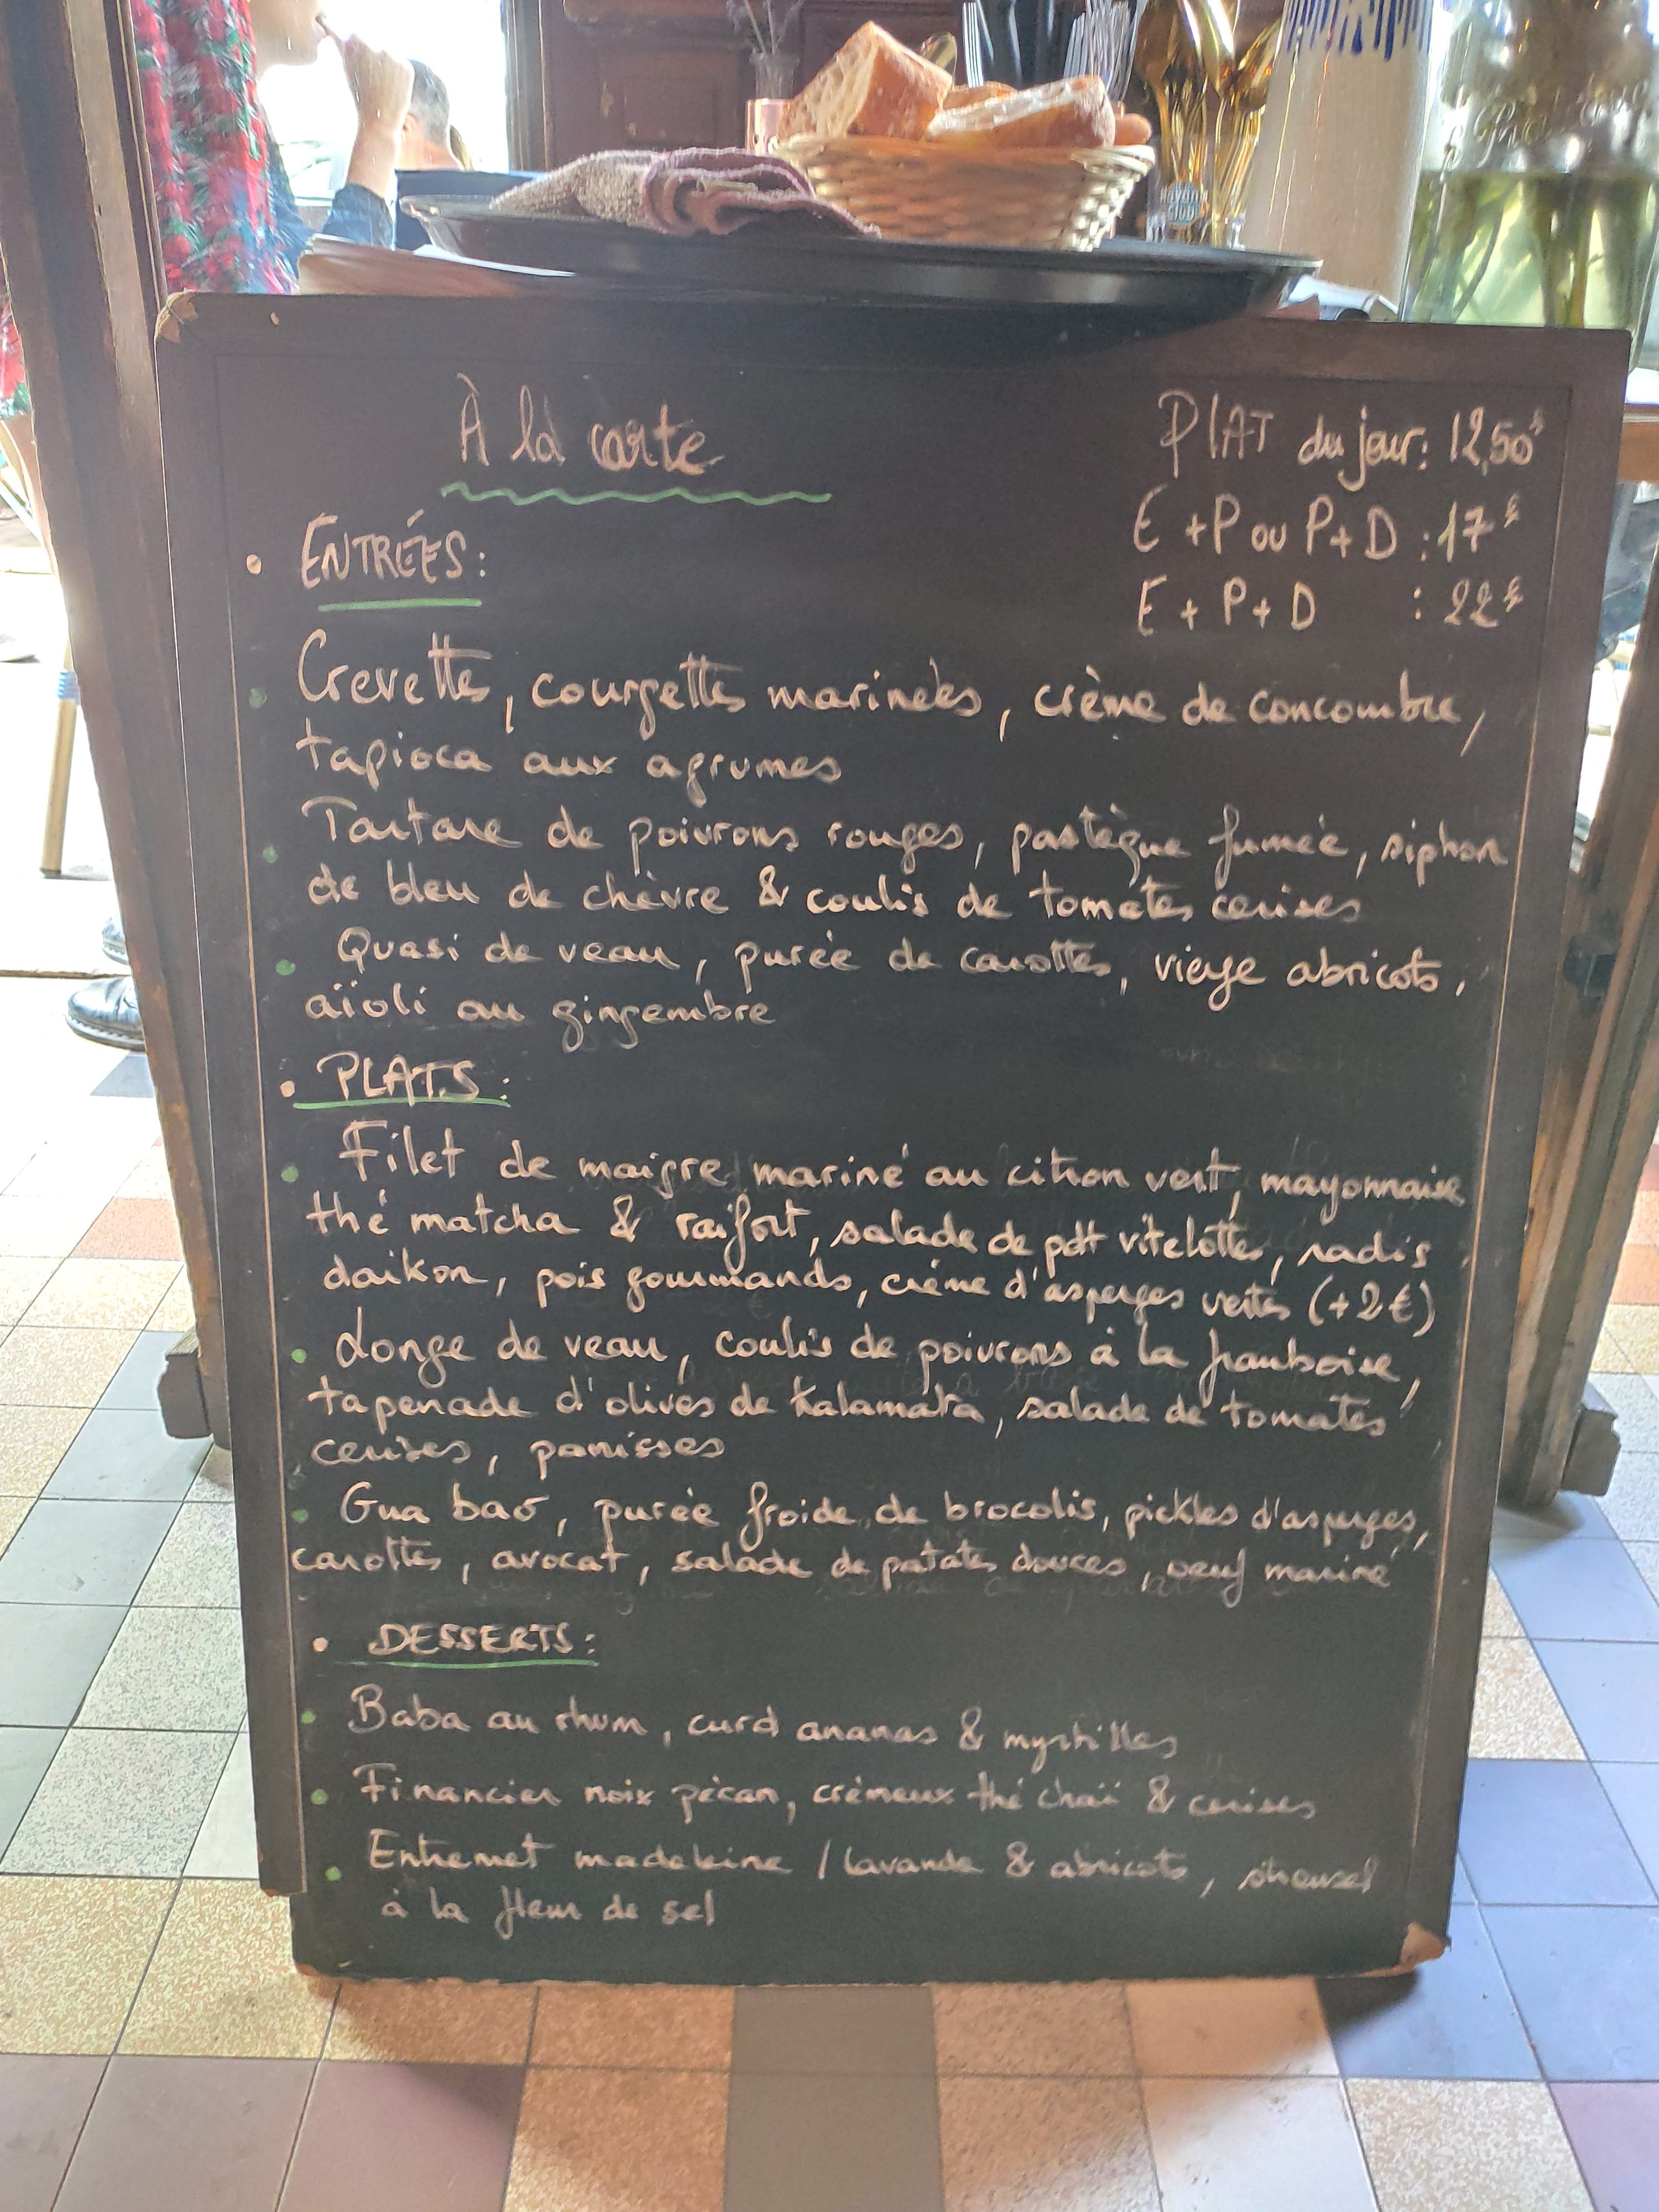 À la carte
PLAT du jour: 12,50€
E + P ou P + D : 17€
E + P + D : 22€
• ENTRÉES:
• Crevettes, courgettes marinées, crème de concombre,
tapioca aux agrumes
• Tartare de poivrons rouges, pastèque fumée, siphon
de bleu de chèvre & coulis de tomates cerises
• Quasi de veau, purée de carottes, vierge abricots,
aïoli au gingembre
• PLATS:
• Filet de maigre mariné au citron vert, mayonnaise
thé matcha & raifort, salade de pdt vitelotte, radis
daikon, pois gourmands, crème d'asperges vertes (+2€)
• Longe de veau, coulis de poivrons à la framboise,
tapenade d'olives de kalamata, salade de tomates
cerises, panisses
• Gua bao, purée froide de brocolis, pickles d'asperges,
carottes, avocat, salade de patates douces, oeuf mariné
• DESSERTS:
• Baba au rhum, curd ananas & myrtilles
• Financier noix pécan, crémeux thé chaï & cerises
• Entremet madeleine / lavande & abricots, streusel
à la fleur de sel
Havana
Club